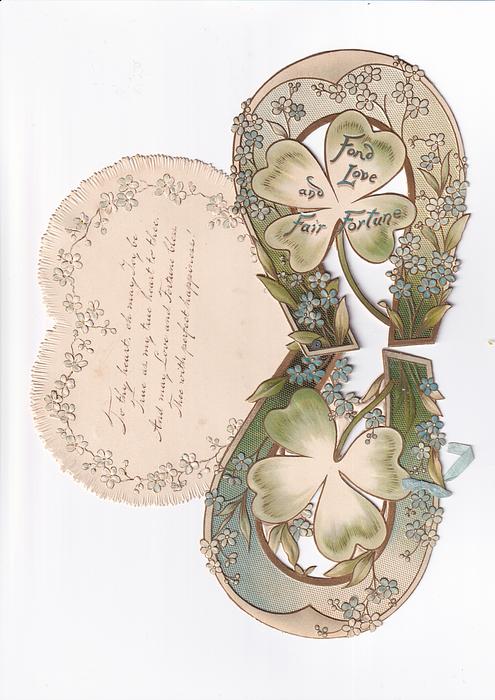 Fond
Love
and
Fair Fortune
To thy heart, oh may Joy be
True as my true heart to thee.
And may Love and Fortune bless
Thee with perfect happiness!